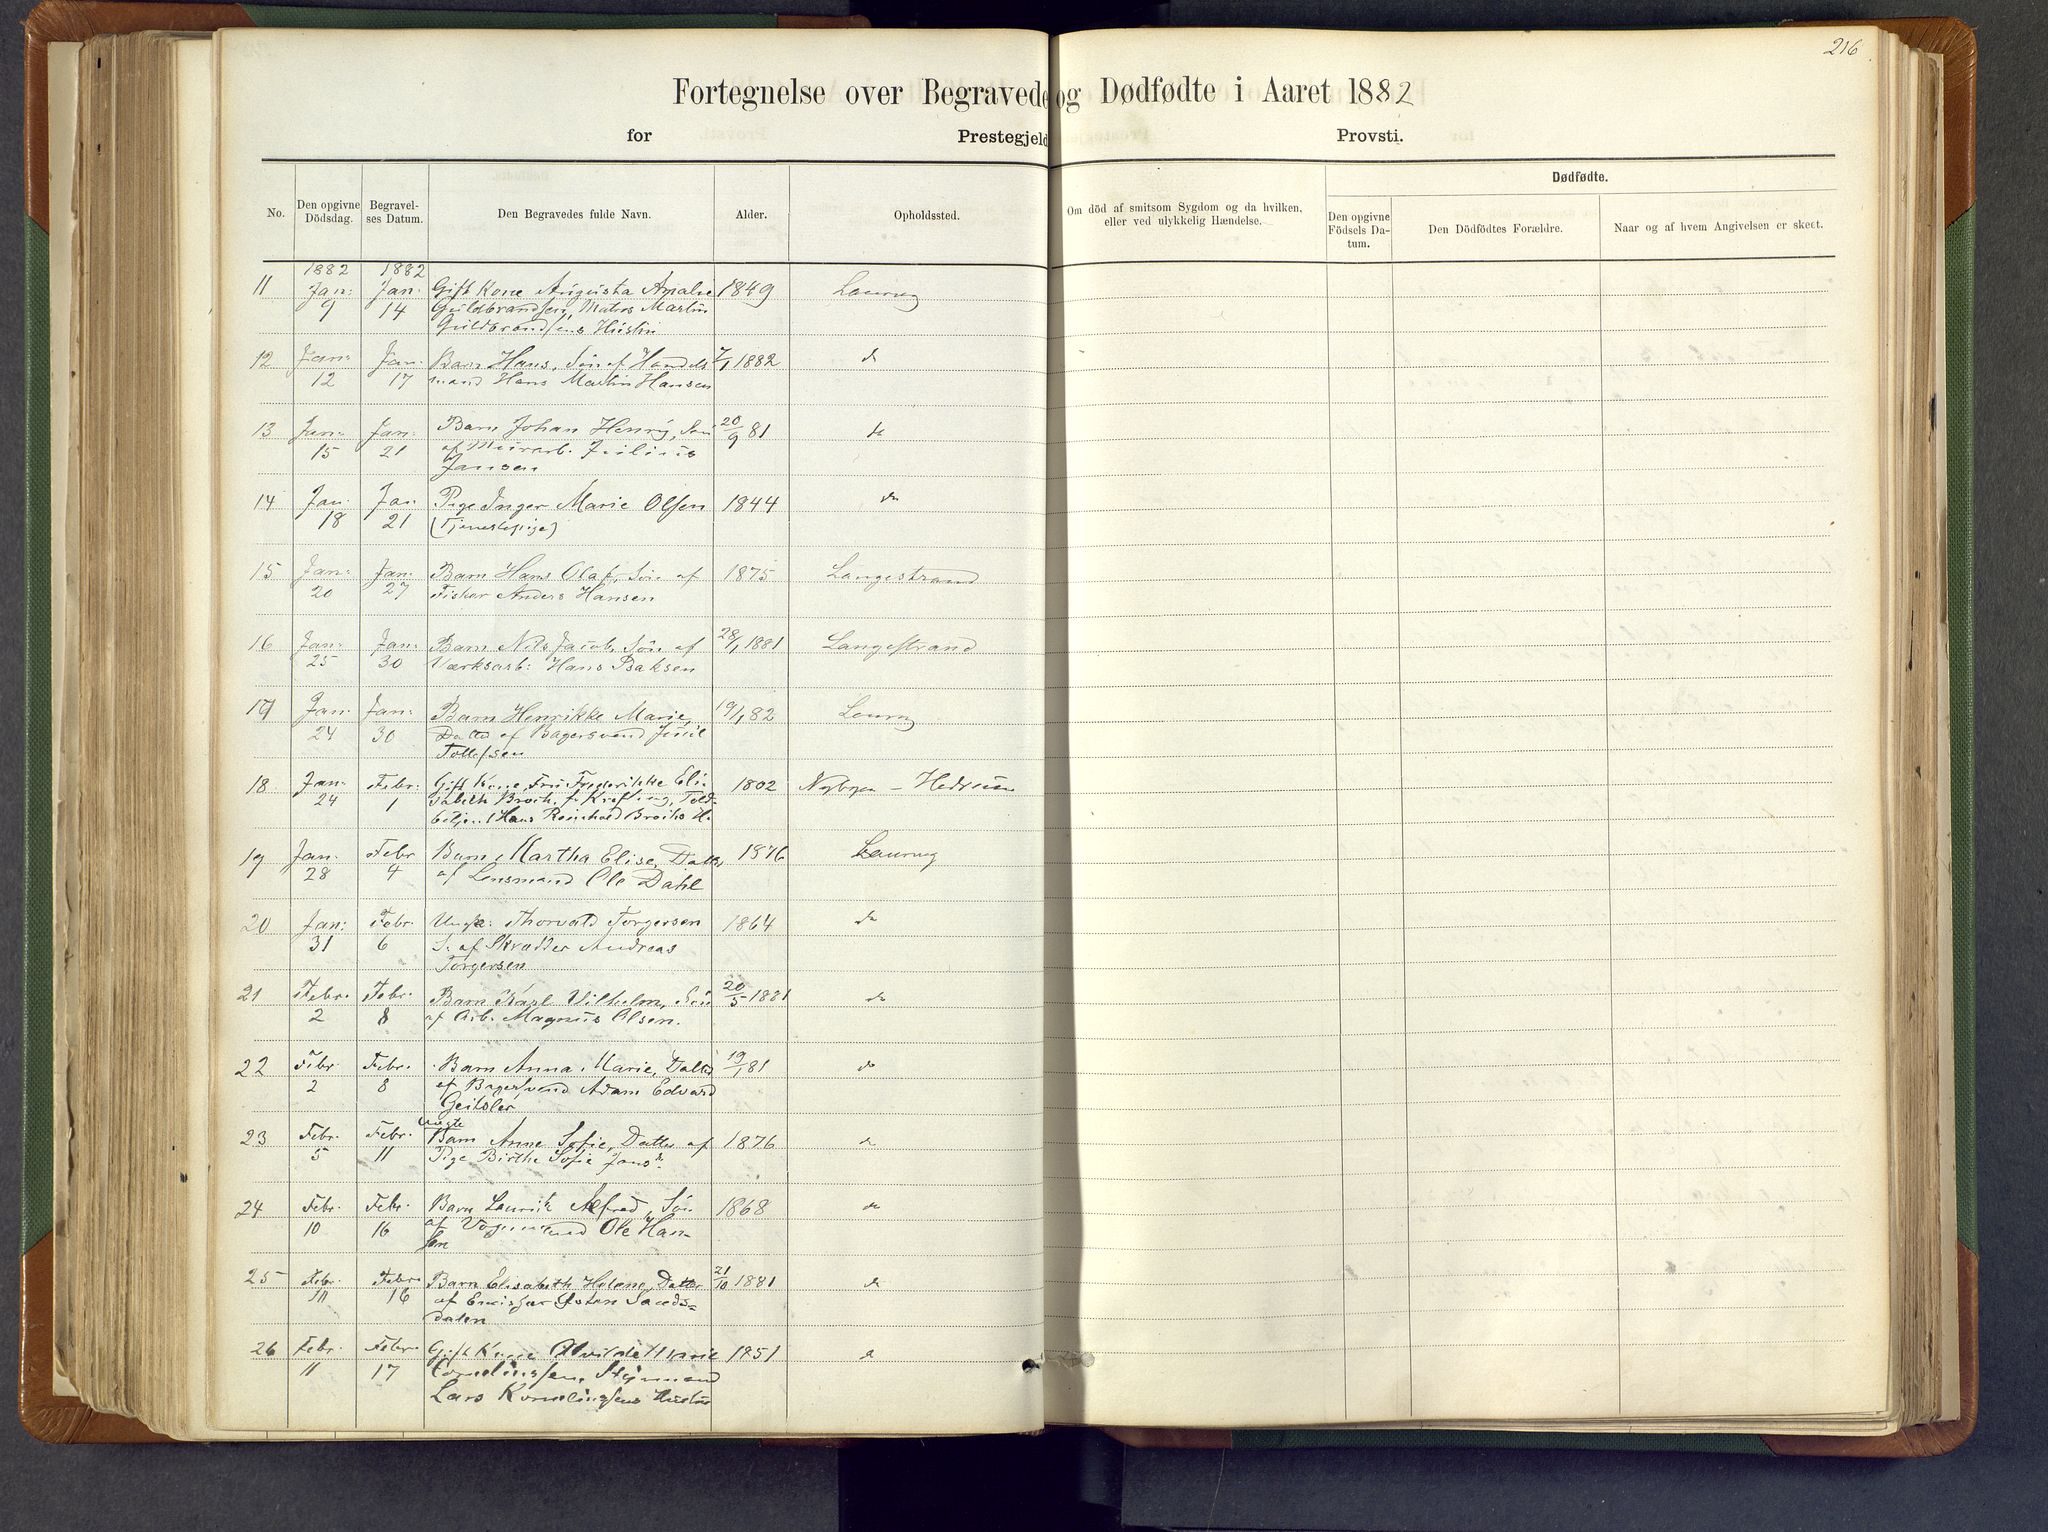 216
Fortegnelse over Begravede og Dødfødte i Aaret 1882
for Prestegjeld Provsti.
No.
Den opgivne Dödsdag.
Begravelses Datum.
Den Begravedes fulde Navn.
Alder.
Opholdssted.
Om död af smitsom Sygdom og da hvilken, eller ved ulykkelig Hændelse.
Dødfødte.
Den opgivne Födsels Datum.
Den Dödfödtes Forældre.
Naar og af hvem Angivelsen er skeet.
1882 1882
11 Jan: Jan: Gift Kone Augusta Amalie 1849 Laurvig
9 14 Guldbrandsen, Matros Martin
Guldbrandsens Hustru
12 Jan: Jan: Barn Hans, Søn af Handels 7/1 1882 do
12 17 mand Hans Martin Hansen
13 Jan: Jan: Barn Johan Henry, Søn 20/9 81 do
15 21 af Murarb. Julius
Jansen
14 Jan. Jan. Pige Inger Marie Olsen 1844 do
18 21 (Tjenestepige)
15 Jan: Jan: Barn Hans Olaf, Søn af 1875 Langestrand
20 27 Fisker Anders Hansen
16 Jan: Jan: Barn Nils Jacob, Søn af 28/1 1881 Langestrand
25 30 Værksarb: Hans Baksen
17 Jan: Jan: Barn Henrikke Marie, 19/1 82 Laurvig
24 30 Datter af Bagersvend
Tollefsen
18 Jan: Febr: Gift Kone, Fru Frederikke Eli- 1802 Nybyen - Hedrum
24 1 sabeth Broch, f. Krefting, Told-
betjent Hans Reinhold Brochs H.
19 Jan: Febr Barn Martha Elise, Datter 1876 Laurvig
28 4 af Lensmand Ole Dahl
20 Jan: Febr Ungk: Thorvald Torgersen 1864 do
31 6 S. af Skrædder Andreas
Torgersen
21 Febr. Febr. Barn Karl Vilhelm, Søn 20/5 1881 do
2 8 af Arb. Magnus Olsen.
22 Febr. Febr. Barn Anna Marie, Datter 19/1 81 do
2 8 af Bagersvend Adam Edvard
Geitsler
uægte
23 Febr. Febr. Barn Anne Sofie, Datter af 1876 do
5 11 Pige Birthe Sofie Jansn
24 Febr. Febr. Barn Laurits Alfred, Søn 1868 do
10 16 af Vognmand Ole Han-
sen
25 Febr. Febr. Barn Elisabeth Helene, Datter 21/10 1881 do
11 16 af Sands-
dalen
26 Febr. Febr. Gift Kone Alvilde Marie 1851 do
11 17 Corneliussen, Styrmand
Lars Korneliussens Hustru